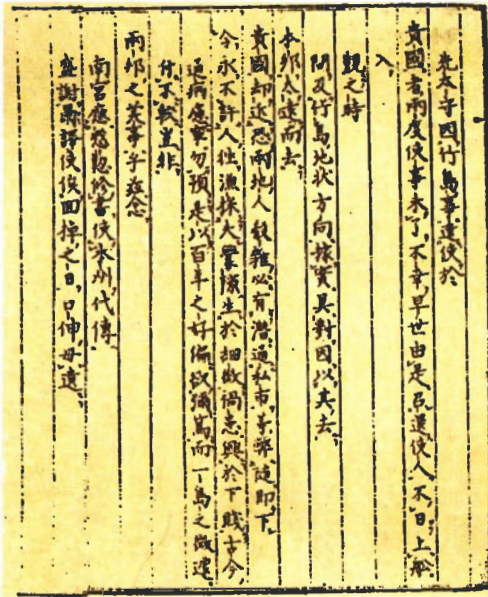 先太守因竹島事遣使於
貴國者兩度使事未了不幸早世由是召還使人不日上船
入
覲之時
問及竹島地狀方向據實具對因以其去
本邦太遠而去
貴國却近恐兩地人殽雜必有潛通私市等弊隨即下
令永不許人往漁採夫釁隙生於細微禍患興於下賤古今
通病慮寧勿預是以百年之好偏欲彌篤而一島之微遽
付不較豈非
兩邦之美事乎玆念
南宮應慇懃修書使本州代傳
盛謝爲譯使俟回棹之日口伸毋遺